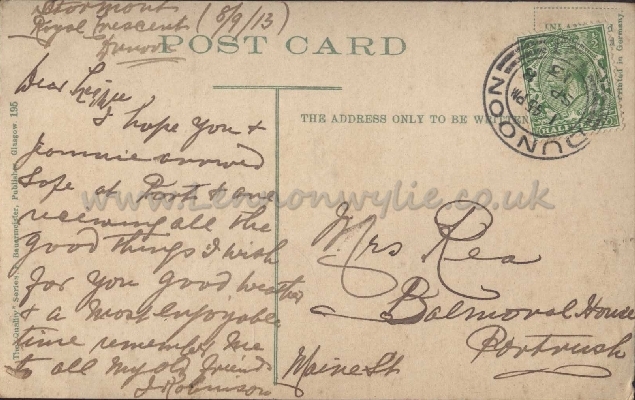 Stormont
Royal Crescent (8/9/13)
Dunoon
POST CARD
Dear Lizzie
I hope you +
Jeannie arrived
safe at Port + are
receiving all the
good things I wish
for you good weather
+ a most enjoyable
time remember me
to all my old friends
J Robinson
THE ADDRESS ONLY TO BE WRITTEN
Mrs Rea
Balmoral House
Portrush
Maine St
DUNOON
HALF
INLAND
Printed in Germany
Series, Publisher, Glasgow. 195
www.Lennonwylie.co.uk